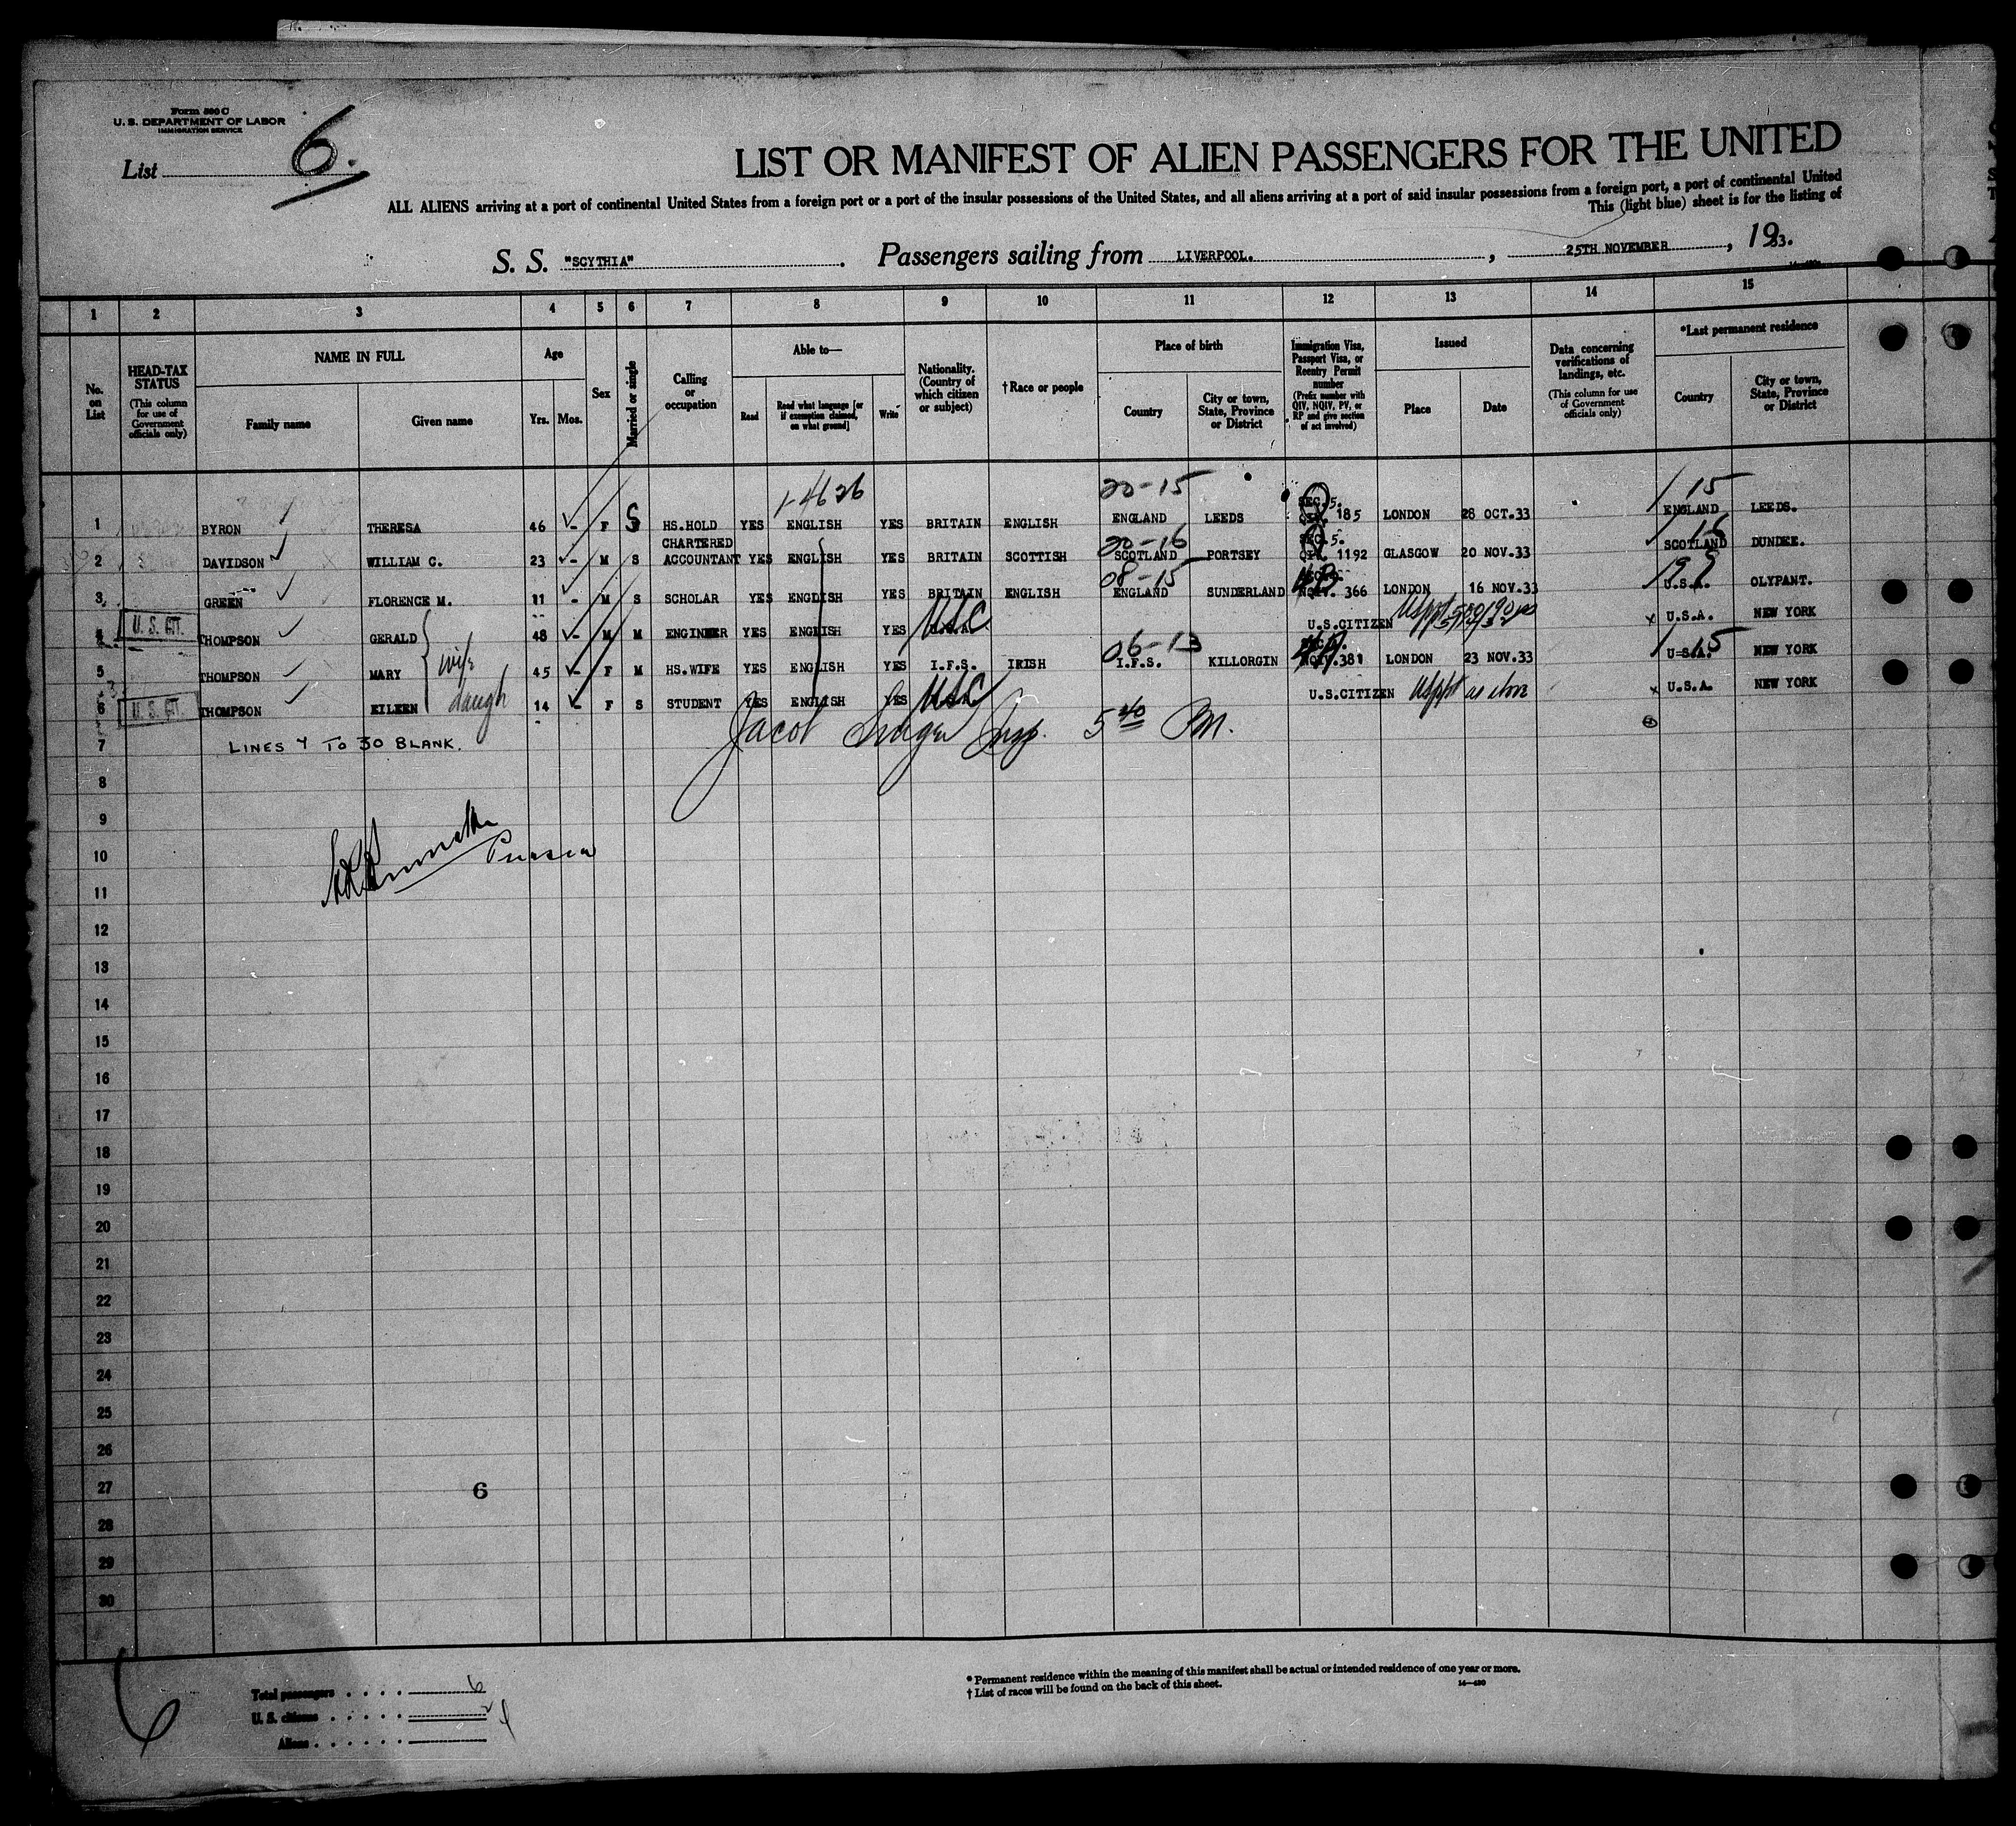 Form 500 C
U. S. DEPARTMENT OF LABOR
IMMIGRATION SERVICE
List 6.
LIST OR MANIFEST OF ALIEN PASSENGERS FOR THE UNITED
ALL ALIENS arriving at a port of continental United States from a foreign port or a port of the insular possessions of the United States, and all aliens arriving at a port of said insular possessions from a foreign port, a port of continental United
This (light blue) sheet is for the listing of
S. S. "SCYTHIA" . Passengers sailing from LIVERPOOL. , 25TH NOVEMBER , 1933.
1 2 3 4 5 6 7 8 9 10 11 12 13 14 15
No. on List
HEAD-TAX STATUS (This column for use of Government officials only)
NAME IN FULL
Family name Given name
Age
Yrs. Mos.
Sex
Married or single
Calling or occupation
Able to—
Read Read what language [or if exemption claimed, on what ground] Write
Nationality. (Country of which citizen or subject)
†Race or people
Place of birth
Country City or town, State, Province or District
Immigration Visa, Passport Visa, or Reentry Permit number (Prefix number with QIV, NQIV, PV, or RP and give section of act involved)
Issued
Place Date
Data concerning verifications of landings, etc. (This column for use of Government officials only)
*Last permanent residence
Country City or town, State, Province or District
1-4626 20-15 SEC.5. 15
1 BYRON THERESA 46 - F S HS.HOLD YES ENGLISH YES BRITAIN ENGLISH ENGLAND LEEDS QIV. 185 LONDON 28 OCT.33 ENGLAND LEEDS.
CHARTERED 20-16 SEC.5.
2 DAVIDSON WILLIAM C. 23 - M S ACCOUNTANT YES ENGLISH YES BRITAIN SCOTTISH SCOTLAND PORTSEY QIV. 1192 GLASGOW 20 NOV.33 SCOTLAND DUNDEE.
08-15
3 GREEN FLORENCE M. 11 - M S SCHOLAR YES ENGLISH YES BRITAIN ENGLISH ENGLAND SUNDERLAND NQIV. 366 LONDON 16 NOV.33 U.S.A. OLYPANT.
4 U. S. CIT. THOMPSON GERALD 48 - M M ENGINEER YES ENGLISH YES USC U.S.CITIZEN x U.S.A. NEW YORK
06-13 15
5 THOMPSON MARY wife 45 - F M HS.WIFE YES ENGLISH YES I.F.S. IRISH I.F.S. KILLORGIN NQIV.381 LONDON 23 NOV.33 U.S.A. NEW YORK
6 U. S. CIT. THOMPSON EILEEN daugh 14 - F S STUDENT YES ENGLISH YES USC U.S.CITIZEN USppt as above x U.S.A. NEW YORK
7 LINES 7 TO 30 BLANK. Jacob Insp. 5 40 PM.
8
9
10 Purser
11
12
13
14
15
16
17
18
19
20
21
22
23
24
25
26
27 6
28
29
30
6
Total passengers . . . . 6
U. S. citizens . . . . . 2
Aliens . . . . . . 4
* Permanent residence within the meaning of this manifest shall be actual or intended residence of one year or more.
† List of races will be found on the back of this sheet. 14—430